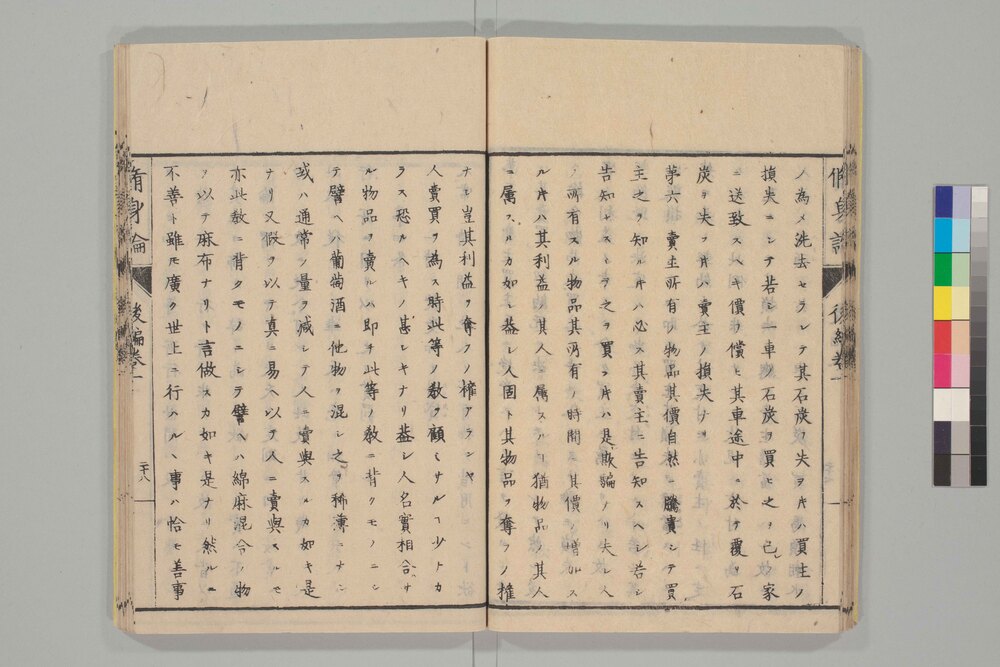 ノ為メ洗去セラレテ其石炭ヲ失ヲ片ハ買主ノ
損失ニシテ若シ一車ノ石炭ヲ買ヒ之ヲ己レノ家
ニ送致スヘキ價ヲ償ヒ其車途中ニ於テ覆リ石
炭ヲ失フ片ハ賣主ノ損失ナリ
第六賣主所有ノ物品其價自然ニ騰貴シテ買
主之ヲ知ル片ハ必ス其賣主ニ告知スヘシ若シ
告知セスシテ之ヲ買フ片ハ是欺騙ナリ夫レ人
ノ所有スル物品其所有ノ時間ニ其價ノ増加ス
ル片ハ其利益ノ其人ニ屬スル猶物品ノ其人
ニ屬スルカ如シ蓋シ人固ト其物品ヲ奪フノ権
ナシ豈其利益ヲ奪フノ権アランヤ
人賣買ヲ為ス時此等ノ教ヲ顧ミサルヿ少トカ
ラス恐ルヘキノ甚シキナリ蓋シ人名實相合ハサ
ル物品ヲ賣ルハ即チ此等ノ教ニ背クモノニシ
テ譬ヘハ葡萄酒ニ他物ヲ混シ之ヲ稀薄ニナシ
或ハ通常ノ量ヲ減シテ人ニ賣與スルカ如キ是
ナリ又假ヲ以テ真ニ易ヘ以テ人ニ賣與スルモ
亦此教ニ背クモノニシテ譬ヘハ綿麻混合ノ物
ヲ以テ麻布ナリト言做スカ如キ是ナリ然ルニ
不善ト雖モ廣ク世上ニ行ハルヽ事ハ恰モ善事
脩身論
後編卷一
二十八